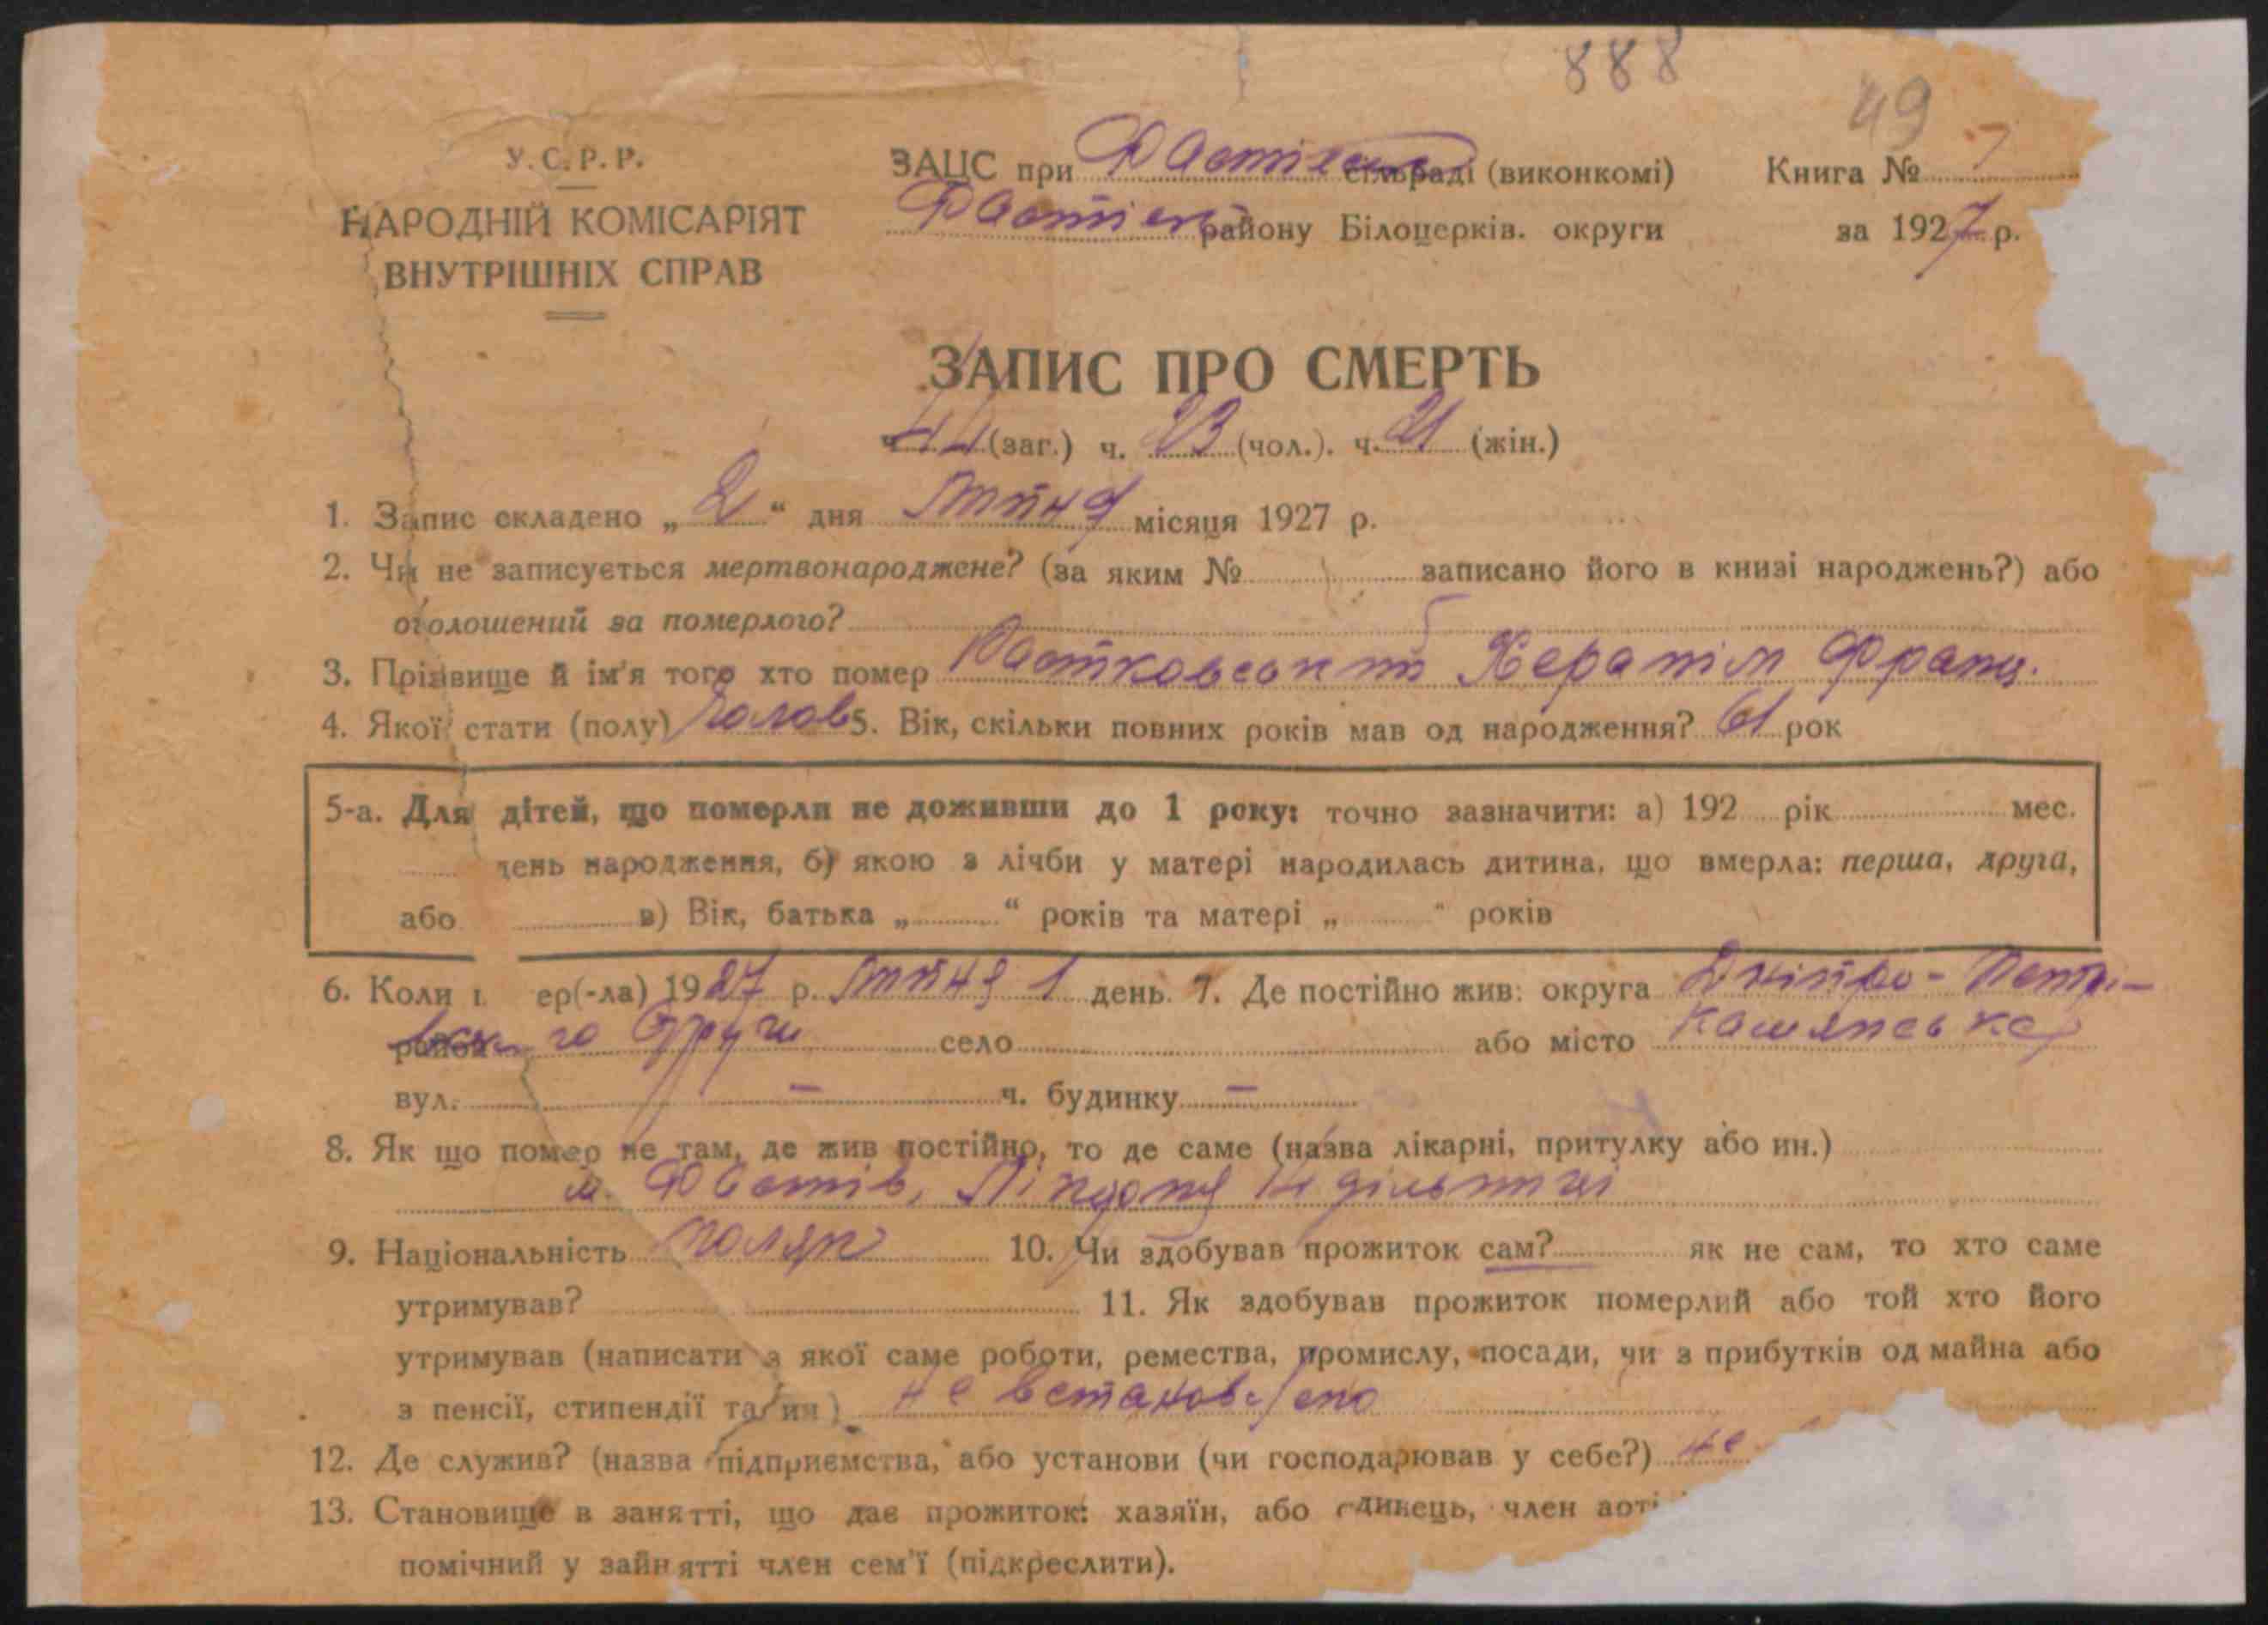 888
49
У.С.Р.Р.
НАРОДНІЙ КОМІСАРІЯТ
ВНУТРІШНІХ СПРАВ
ЗАЦС при Фастівськ сільраді (виконкомі)
Фастівськ району Білоцерків. округи
Книга № 7
за 1927 р.
ЗАПИС ПРО СМЕРТЬ
ч. 44 (заг.) ч. 23 (чол.). ч. 21 (жін.)
1. Запис складено „ 2 “ дня Липня місяця 1927 р.
2. Чи не записується мертвонароджене? (за яким № записано його в книзі народжень?) або
оголошений за померлого?
3. Прізвище й ім'я того хто помер Франц.
4. Якої стати (полу) Чолов 5. Вік, скільки повних років мав од народження? 61 рок
5-а. Для дітей, що померли не доживши до 1 року: точно зазначити: а) 192 рік мес.
день народження, б) якою з лічби у матері народилась дитина, що вмерла: перша, друга,
або в) Вік, батька „ “ років та матері „ “ років
6. Коли ер(-ла) 1927 р. Липня 1 день. 7. Де постійно жив: округа Дніпро-Петрі-
район Округи село або місто
вул. – ч. будинку –
8. Як що помер не там, де жив постійно, то де саме (назва лікарні, притулку або ин.)
м. Фастів, дільниці
9. Національність поляк 10. Чи здобував прожиток сам? як не сам, то хто саме
утримував? 11. Як здобував прожиток померлий або той хто його
утримував (написати з якої саме роботи, ремества, промислу, посади, чи з прибутків од майна або
з пенсії, стипендії та ин) не встановлено
12. Де служив? (назва підприємства, або установи (чи господарював у себе?) не
13. Становище в занятті, що дає прожиток: хазяїн, або єдинець, член арті
помічний у зайнятті член сем'ї (підкреслити).